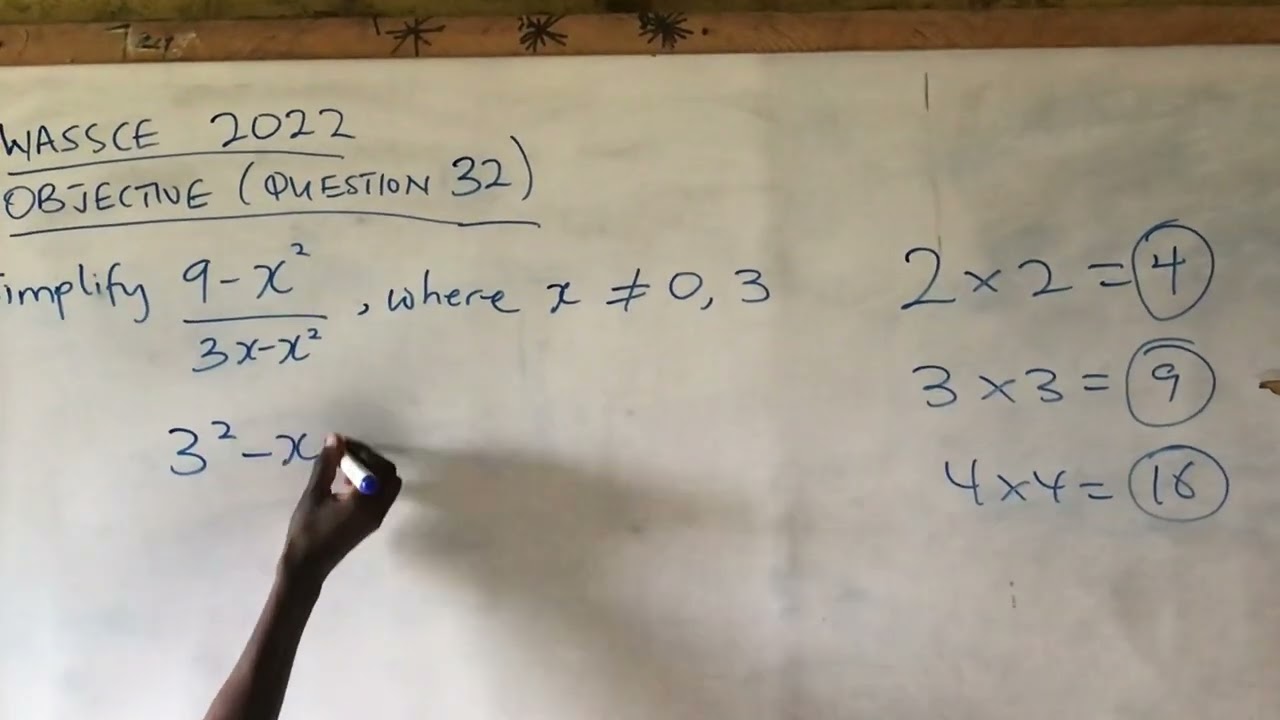 WASSCE 2022
OBJECTIVE (QUESTION 32)
implify 9-x² / 3x-x² , where x ≠ 0, 3
3² - x
2 × 2 = 4
3 × 3 = 9
4 × 4 = 16